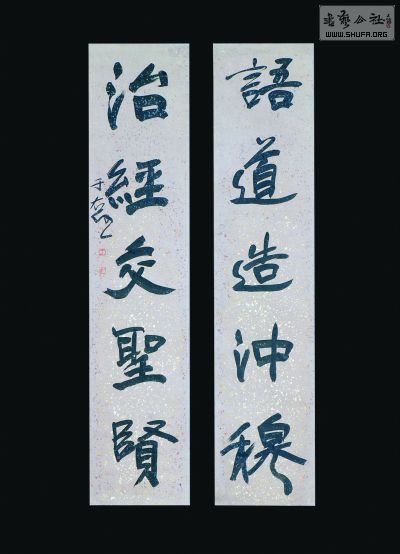 書藝公社
WWW.SHUFA.ORG
語道造沖穆
治經交聖賢
于右任